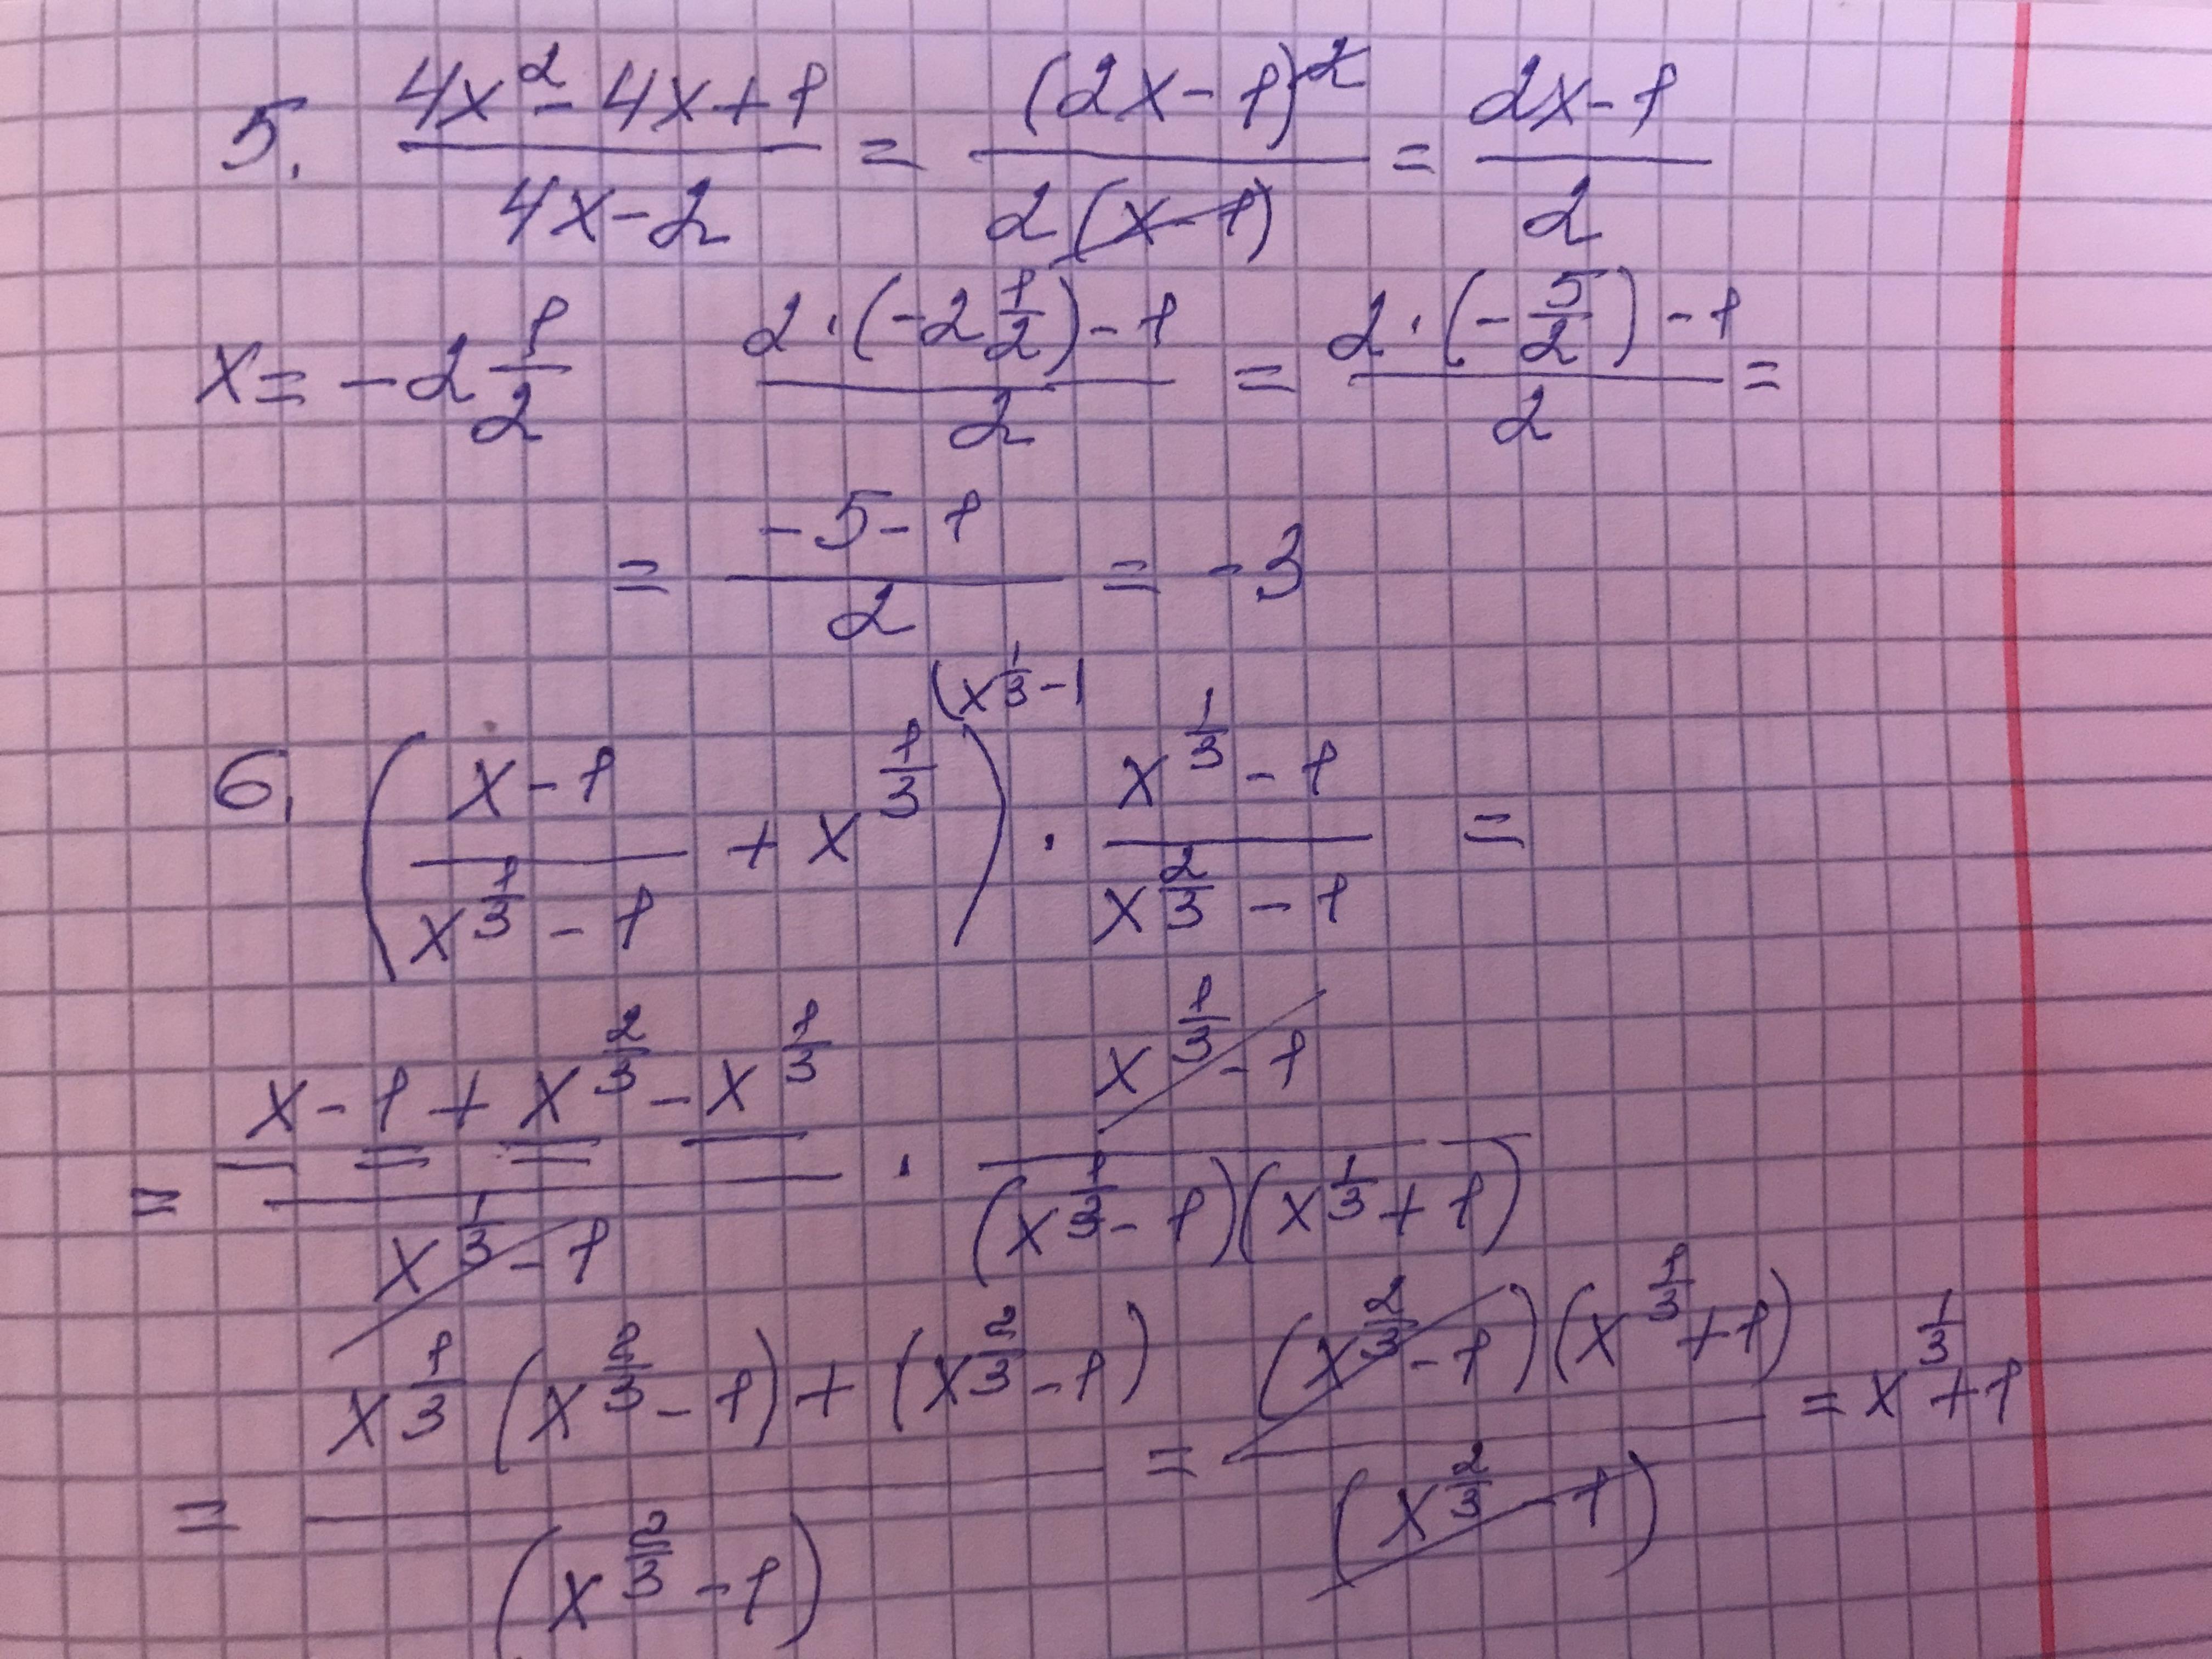 5. (4x² - 4x + 1)/(4x - 2) = (2x - 1)²/(2(x - 1)) = (2x - 1)/2
x = -2 1/2   (2 · (-2 1/2) - 1)/2 = (2 · (-5/2) - 1)/2 =
= (-5 - 1)/2 = -3
(x^(1/3) - 1
6. ((x - 1)/(x^(1/3) - 1) + x^(1/3)) · (x^(1/3) - 1)/(x^(2/3) - 1) =
= (x - 1 + x^(2/3) - x^(1/3))/(x^(1/3) - 1) · (x^(1/3) - 1)/((x^(1/3) - 1)(x^(1/3) + 1))
= (x^(1/3)(x^(2/3) - 1) + (x^(2/3) - 1))/(x^(2/3) - 1) = ((x^(2/3) - 1)(x^(1/3) + 1))/(x^(2/3) - 1) = x^(1/3) + 1